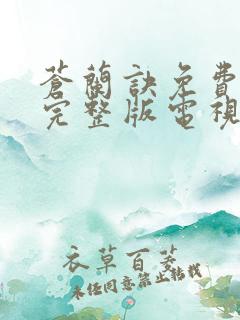 蒼蘭訣免費
完整版電視
衣草百荽
未經同意禁止轉載